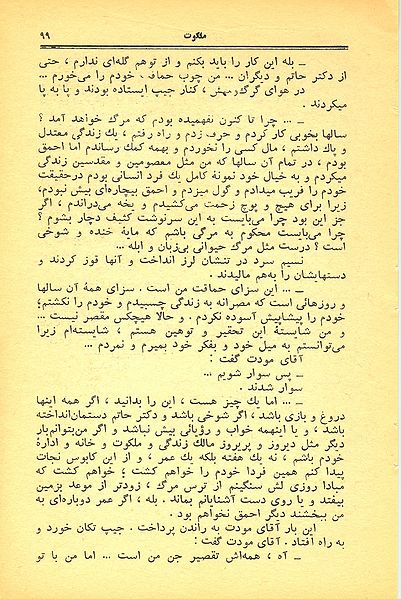 ملکوت ۹۹
ـ بله این کار را باید بکنم و از تو هم گله‌ای ندارم ، حتی
از دکتر حاتم و دیگران ... من چوب حماقت خودم را میخورم ...
در هوای گرگ‌ومیش ، کنار جیپ ایستاده بودند و پا به پا
میکردند .
ـ ... چرا تا کنون نفهمیده بودم که مرگ خواهد آمد ؟
سالها بخوبی کار کردم و حرف زدم و راه رفتم ، یك زندگی معتدل
و پاك داشتم ، مال کسی را نخوردم و بهمه کمك رساندم اما احمق
بودم ، در تمام آن سالها که من مثل معصومین و مقدسین زندگی
میکردم و به خیال خود نمونه کامل یك فرد انسانی بودم درحقیقت
خودم را فریب میدادم و گول میزدم و احمق بیچاره‌ای بیش نبودم،
زیرا برای هیچ و پوچ زحمت می‌کشیدم و یخه می‌دراندم ، اگر
جز این بود چرا می‌بایست به این سرنوشت کثیف دچار بشوم ؟
چرا می‌بایست محکوم به مرگی باشم که مایۀ خنده و شوخی
است ؟ درست مثل مرگ حیوانی بی‌زبان و ابله ...
نسیم سرد در تنشان لرز انداخت و آنها قوز کردند و
دستهایشان را به‌هم مالیدند .
ـ ... این سزای حماقت من است . سزای همۀ آن سالها
و روزهائی است که مصرانه به زندگی چسبیدم و خودم را نکشتم؛
خودم را پیشاپیش آسوده نکردم . و حالا هیچکس مقصر نیست ...
و من شایستۀ این تحقیر و توهین هستم ، شایسته‌ام زیرا
می‌توانستم به میل خود و بفکر خود بمیرم و نمردم ...
آقای مودت گفت :
ـ پس سوار شویم ...
سوار شدند .
ـ ... اما یك چیز هست ، این را بدانید ، اگر همه اینها
دروغ و بازی باشد ، اگر شوخی باشد و دکتر حاتم دستمان‌انداخته
باشد ، و یا اینهمه خواب و رؤیائی بیش نباشد و اگر من‌بتوانم‌بار
دیگر مثل دیروز و پریروز مالك زندگی و ملکوت و خانه و ادارۀ
خودم باشم ، نه یك هفته بلکه یك عمر ، و از این کابوس نجات
پیدا کنم همین فردا خودم را خواهم کشت ؛ خواهم کشت که
مبادا روزی لش سنگینم از ترس مرگ ، زودتر از موعد بزمین
بیفتد و یا روی دست آشنایانم بماند . بله ، اگر عمر دوباره‌ای به
من ببخشند دیگر احمق نخواهم بود .
این بار آقای مودت به راندن پرداخت . جیپ تکان خورد و
به راه افتاد . آقای مودت گفت :
ـ آه ، همه‌اش تقصیر جن من است ... اما من با تو